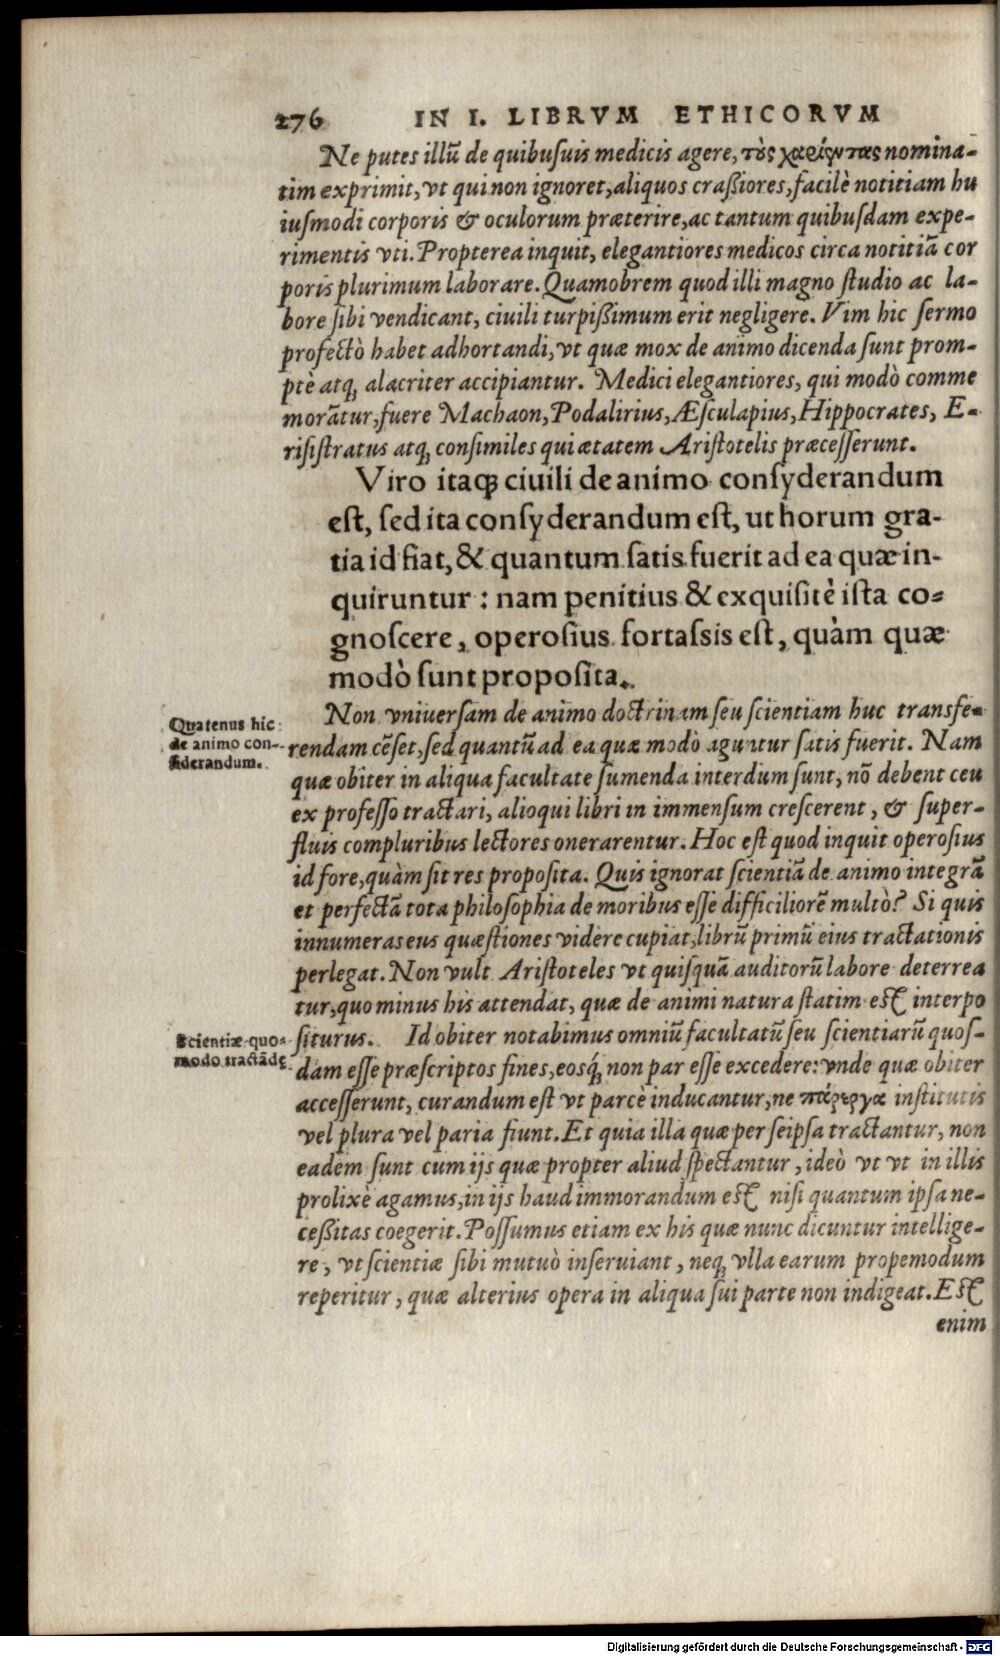 276 IN I. LIBRVM ETHICORVM
Ne putes illũ de quibuſuis medicis agere, τοὺς χαρίεντας nomina-
tim exprimit, vt qui non ignoret, aliquos craßiores, facilè notitiam hu
iuſmodi corporis & oculorum præterire, ac tantum quibuſdam expe-
rimentis vti. Propterea inquit, elegantiores medicos circa notitiã cor
poris plurimum laborare. Quamobrem quod illi magno ſtudio ac la-
bore ſibi vendicant, ciuili turpißimum erit negligere. Vim hic ſermo
profectò habet adhortandi, vt quæ mox de animo dicenda ſunt prom-
ptè atq; alacriter accipiantur. Medici elegantiores, qui modò comme
morãtur, fuere Machaon, Podalirius, Æſculapius, Hippocrates, E-
riſiſtratus atq; conſimiles qui ætatem Ariſtotelis præceſſerunt.
Viro itaq; ciuili de animo conſyderandum
eſt, ſed ita conſyderandum eſt, ut horum gra-
tia id fiat, & quantum ſatis fuerit ad ea quæ in-
quiruntur: nam penitius & exquiſitè iſta co-
gnoſcere, operoſius fortaſsis eſt, quàm quæ
modò ſunt propoſita.
Quatenus hic
de animo con-
ſiderandum.
Non vniuerſam de animo doctrinam ſeu ſcientiam huc transfe-
rendam cẽſet, ſed quantũ ad ea quæ modò aguntur ſatis fuerit. Nam
quæ obiter in aliqua facultate ſumenda interdum ſunt, nõ debent ceu
ex profeſſo tractari, alioqui libri in immenſum creſcerent, & ſuper-
fluis compluribus lectores onerarentur. Hoc eſt quod inquit operoſius
id fore, quàm ſit res propoſita. Quis ignorat ſcientiã de animo integrã
et perfectã tota philoſophia de moribus eſſe difficiliorẽ multò? Si quis
innumeras eus quæſtiones videre cupiat, librũ primũ eius tractationis
perlegat. Non vult Ariſtoteles vt quiſquã auditorũ labore deterrea
tur, quo minus his attendat, quæ de animi natura ſtatim eſt interpo
ſiturus. Id obiter notabimus omniũ facultatũ ſeu ſcientiarũ quoſ-
Scientiæ quo-
modo tractãdę
dam eſſe præſcriptos fines, eosq́; non par eſſe excedere: vnde quæ obiter
acceſſerunt, curandum eſt vt parcè inducantur, ne πάρεργα inſtitutis
vel plura vel paria fiunt. Et quia illa quæ per ſeipſa tractantur, non
eadem ſunt cum ijs quæ propter aliud ſpectantur, ideò vt vt in illis
prolixè agamus, in ijs haud immorandum eſt niſi quantum ipſa ne-
ceßitas coegerit. Poſſumus etiam ex his quæ nunc dicuntur intellige-
re, vt ſcientiæ ſibi mutuò inſeruiant, neq; vlla earum propemodum
reperitur, quæ alterius opera in aliqua ſui parte non indigeat. Eſt
enim
Digitalisierung gefördert durch die Deutsche Forschungsgemeinschaft - DFG